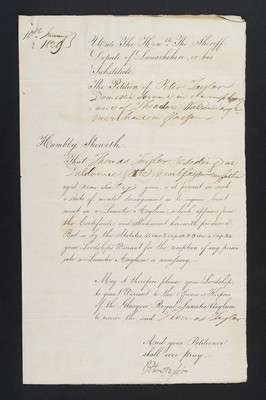 10th January
1829
Unto The Honble The Sheriff
Depute of Lanarkshire, or his
Substitute.
The Petition of Peter Taylor
Domestic Servant in the employ
ment of Theodore
merchant in Glasgow
Humbly Sheweth,
That Thomas Taylor residing at
near Glasgow
aged near years, is at present in such
a state of mental derangement as to require treat
ment in a Lunatic Asylum, which appears from
the Certificate and Statement herewith produced
But as by the Statutes
your Lordship's Warrant for the reception of any person
into a Lunatic Asylum is necessary.
May it therefore please your Lordship,
to grant Warrant to the Officers or Keepers
of the Glasgow Royal Lunatic Asylum
to receive the said Thomas Taylor
And your Petitioner
shall ever pray.
Peter Taylor